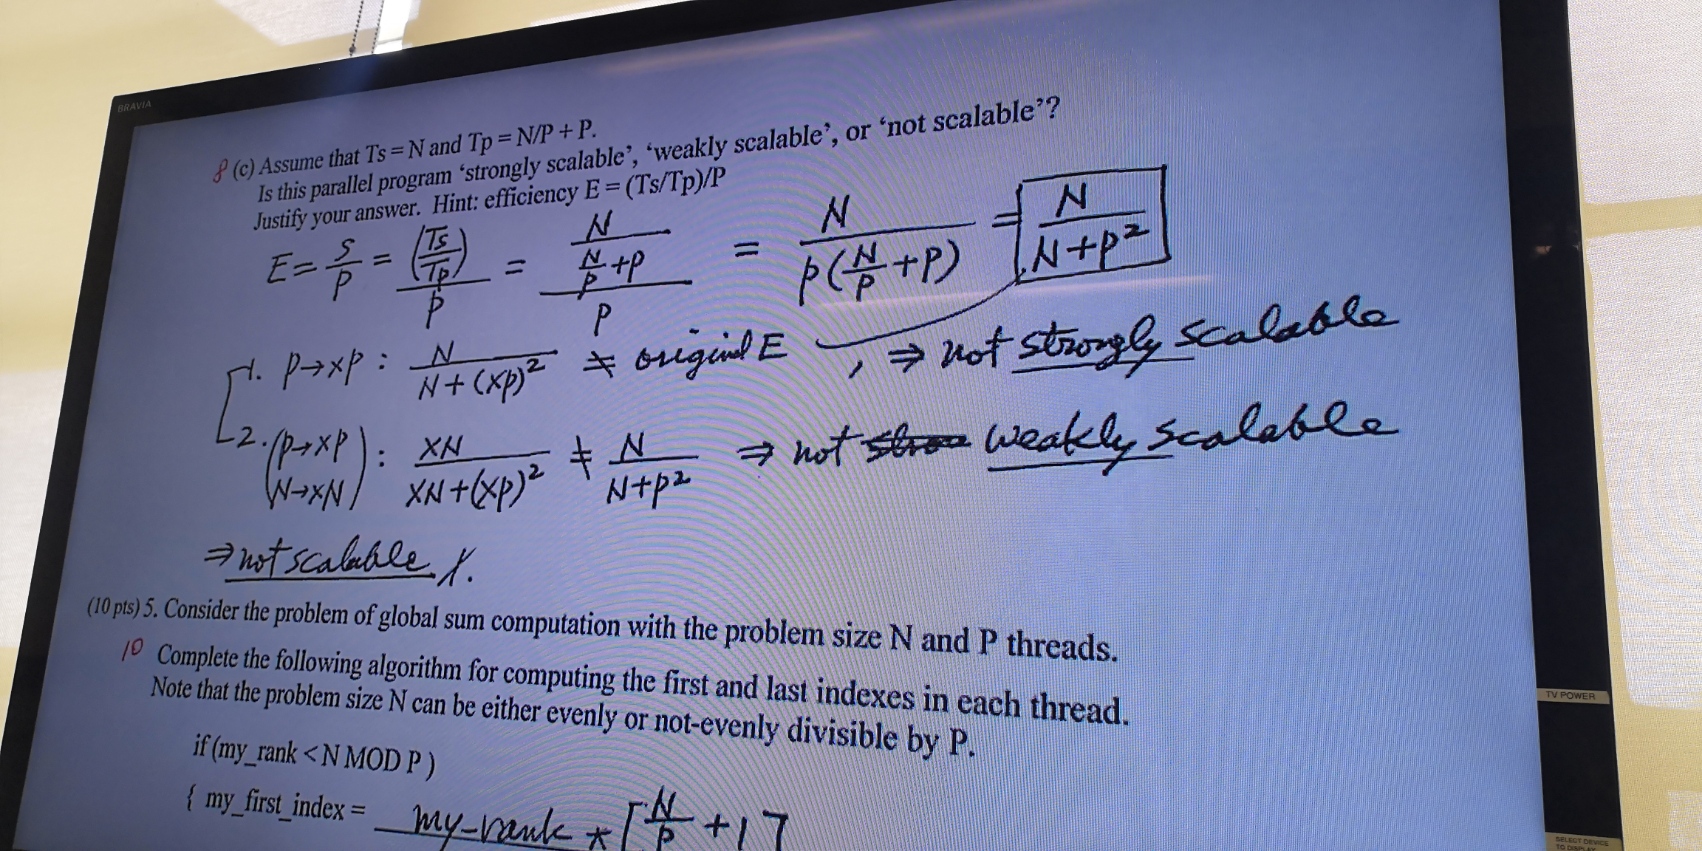 BRAVIA
8 (c) Assume that Ts = N and Tp = N/P + P.
Is this parallel program ‘strongly scalable’, ‘weakly scalable’, or ‘not scalable’?
Justify your answer. Hint: efficiency E = (Ts/Tp)/P
E = S/P = (Ts/Tp)/P = (N/(N/P + P))/P = N/(P(N/P + P)) = N/(N+P²)
1. P→xP : N/(N+(xP)²) ≠ original E , ⇒ not strongly scalable
2. (P→xP N→xN) : xN/(xN+(xP)²) ≠ N/(N+P²) ⇒ not weakly scalable
⇒ not scalable
(10 pts) 5. Consider the problem of global sum computation with the problem size N and P threads.
10 Complete the following algorithm for computing the first and last indexes in each thread.
Note that the problem size N can be either evenly or not-evenly divisible by P.
if (my_rank < N MOD P )
{ my_first_index = my-rank * ⌈N/P + 1⌉
TV POWER
SELECT DEVICE
TO DISPLAY